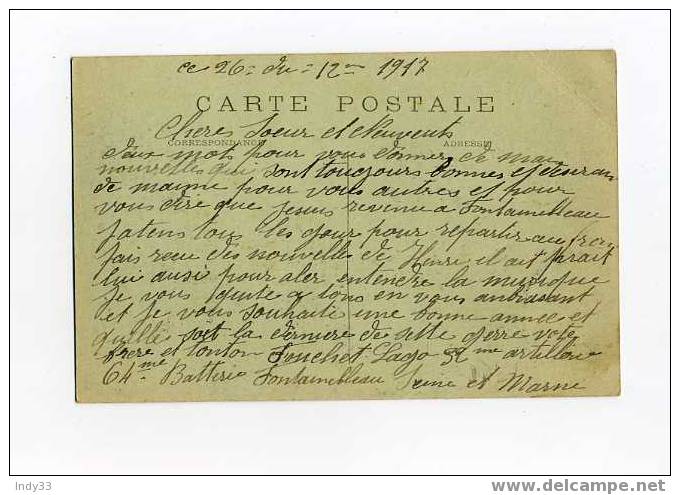 ce 26 du 12me 1917
CARTE POSTALE
Cheres Soeur et Neuveuts
CORRESPONDANCE ADRESSE
deux mots pour vous donner de mai
nouvelles qui sont tougours bonnes et desiran
de maime pour vous autres et pour
vous dire que jesuis revenu a Fontainebleau
jatens tous les gour pour repartir au fron
jais recu des nouvelles de Henri il ait prait
lui ausi pour aler entendre la musique
je vous quite a tous en vous anbrasant
et je vous souhaite une bonne année et
quelle soit la derniere de cette gerre votre
frere et tonton Fouchet Lago me artillerie
64me Batterie Fontainebleau Seine et Marne
Indy33
www.delcampe.net